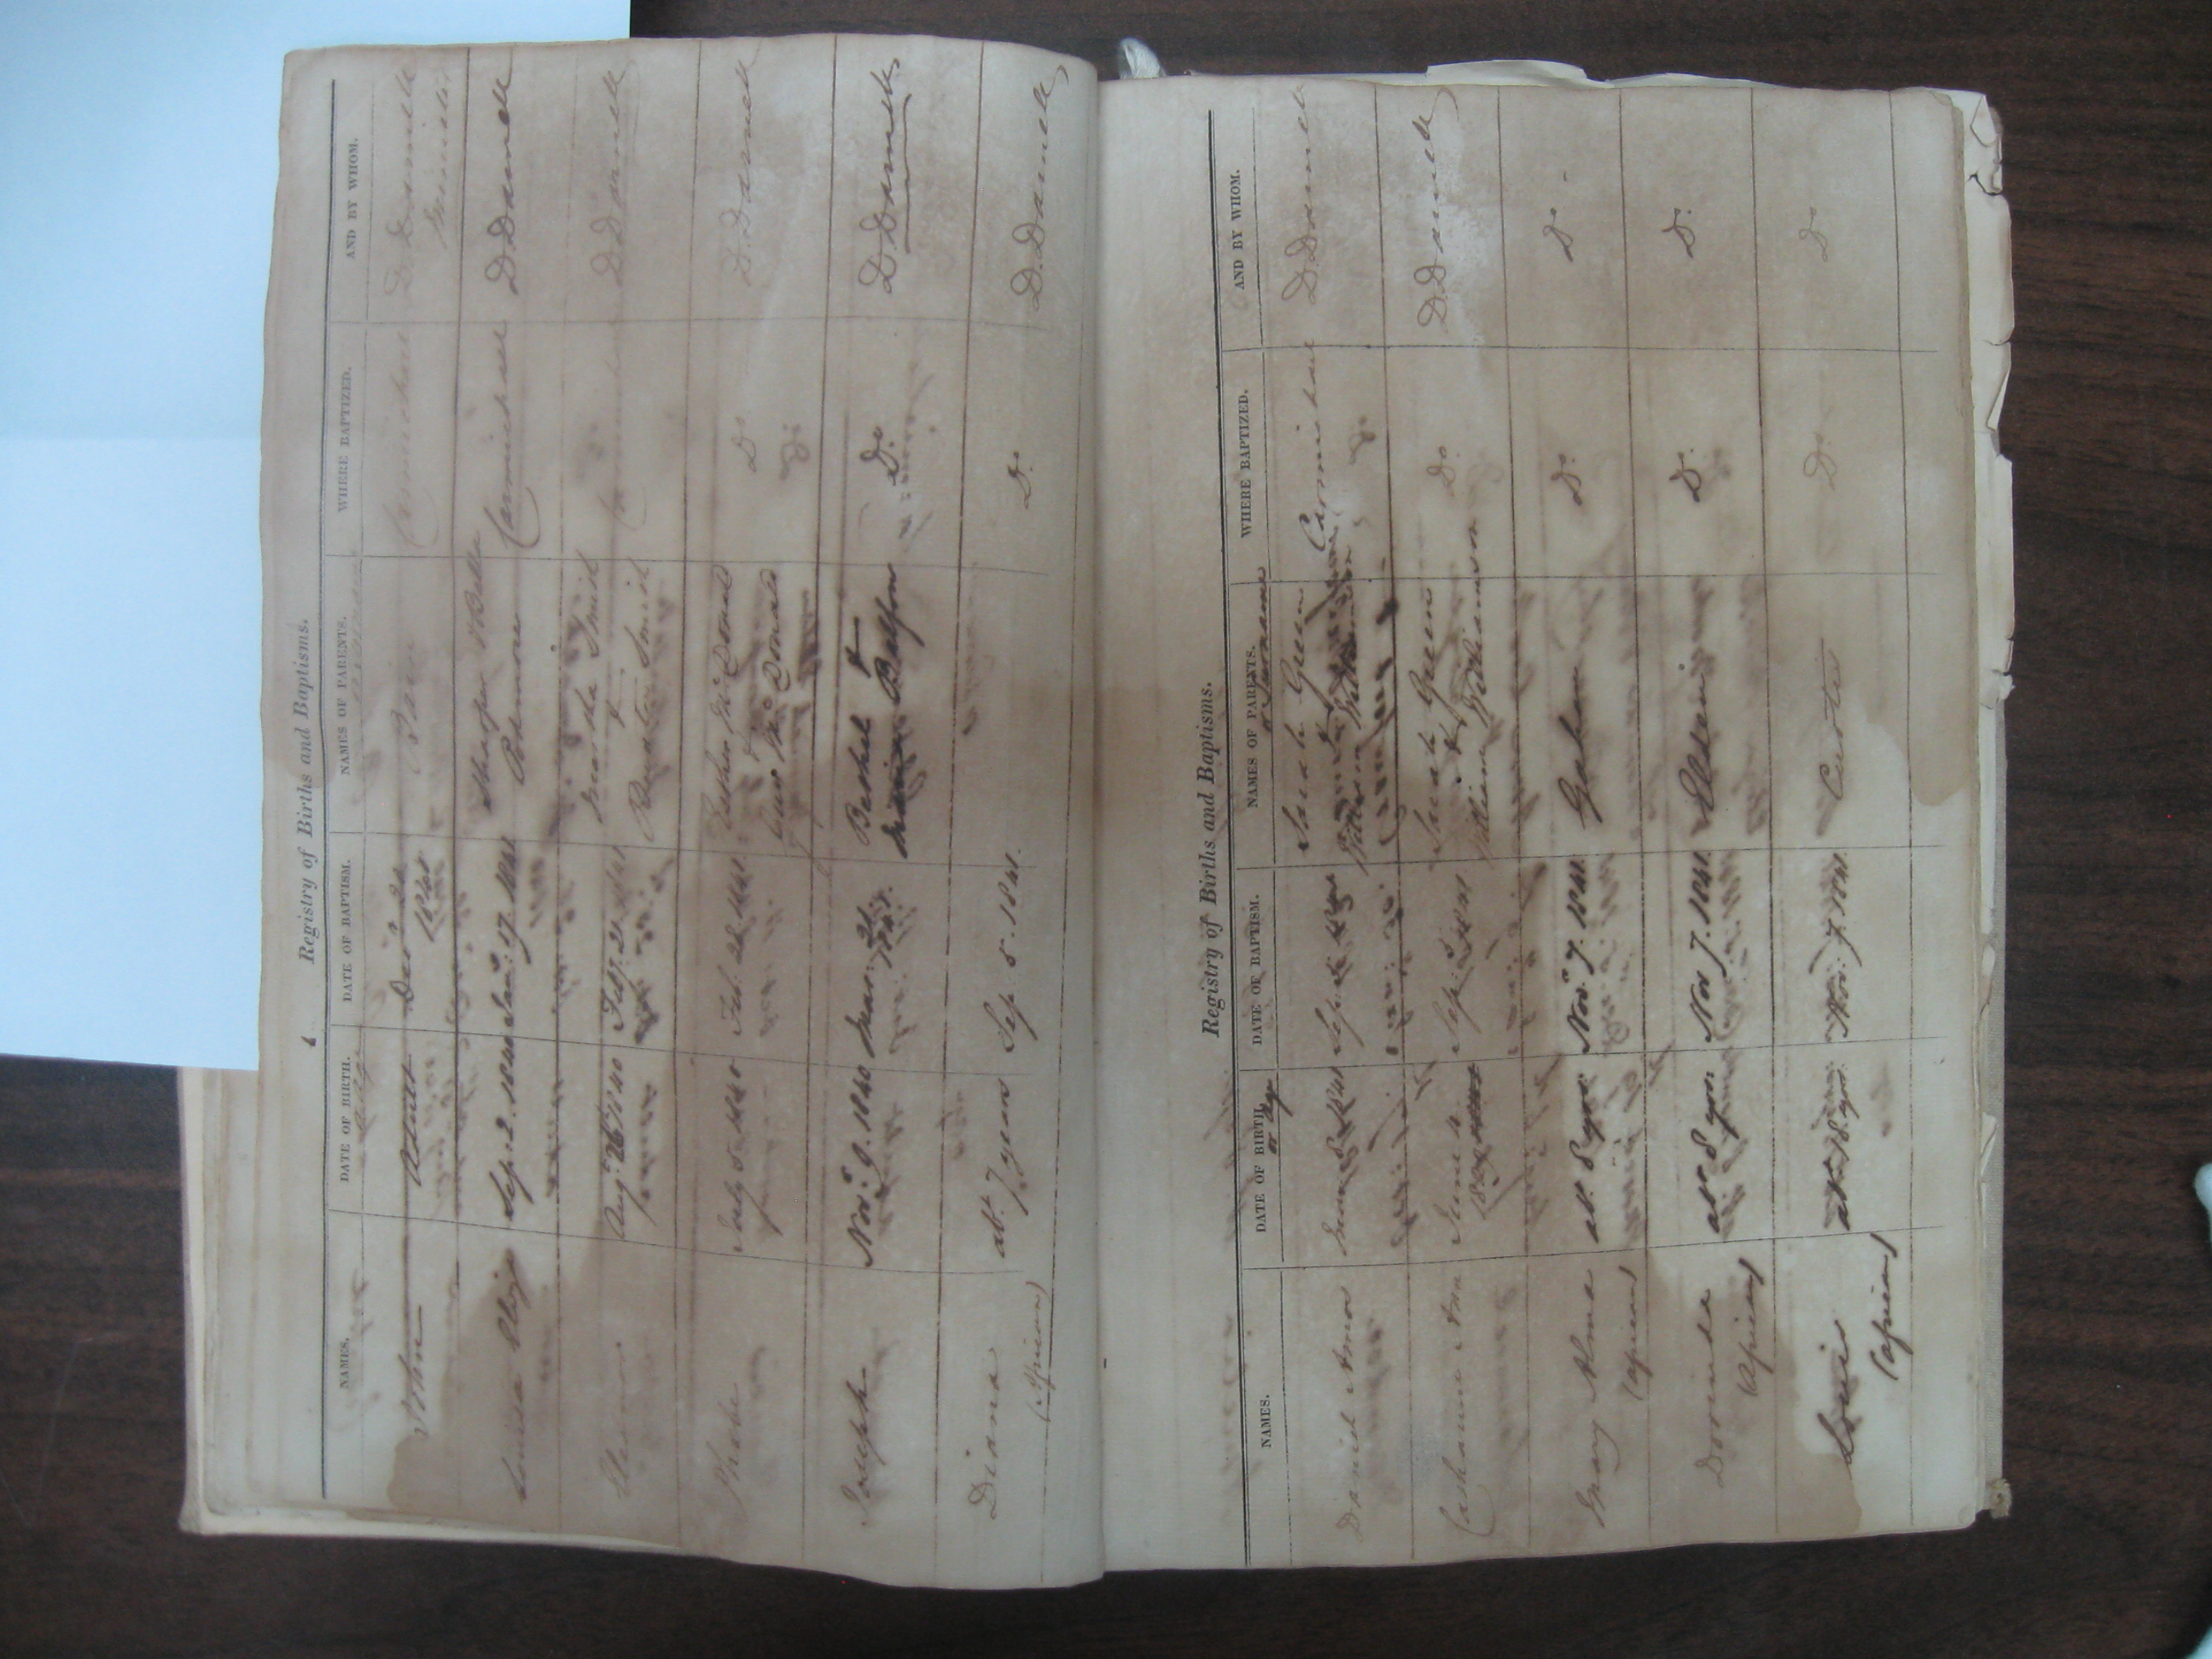 Registry of Births and Baptisms.
NAMES. DATE OF BIRTH. DATE OF BAPTISM. NAMES OF PARENTS. WHERE BAPTIZED. AND BY WHOM.
or Age or Surname
John Adult Decr 20 1840 Bain Carmichael D. Darnell
Minister
Louisa Eliza Sep: 2. 1840 Jany: 17. 1841 Sharper & Bella
Podmore Carmichael D. Darnell
Eleanor Augt 26 1840 Feby. 21 1841 Martha Smith
&
Smith Carmichael D. Darnell
Phebe July 5 1840 Feb: 28. 1841. Esther Mc Donald
&
Mc Donald Do D. Darnell
Joseph Novr 9. 1840 Mar: 21. 1841. Bethel &
Maria Balfour Do D. Darnell
Diana abt 7 years Sep 5. 1841. Do D. Darnell
(African)
Registry of Births and Baptisms.
NAMES. DATE OF BIRTH. DATE OF BAPTISM. NAMES OF PARENTS. WHERE BAPTIZED. AND BY WHOM.
or Age or Surname
Daniel Amos 8. 1841 Sep: 5 1841 Sarah Green
&
William Williamson Carmichael D. Darnell
Catharine Ann June 4 Sep: 5 1841 Sarah Green
&
William Williamson Do D. Darnell
Mary Alma abt 8 yrs: Novr 7. 1841. Do Do
(African)
Dorinda abt 8 yrs: Nov 7. 1841. Do Do
(African)
Louis abt 18 yrs. Nov: 7. 1841. Do Do
(African)